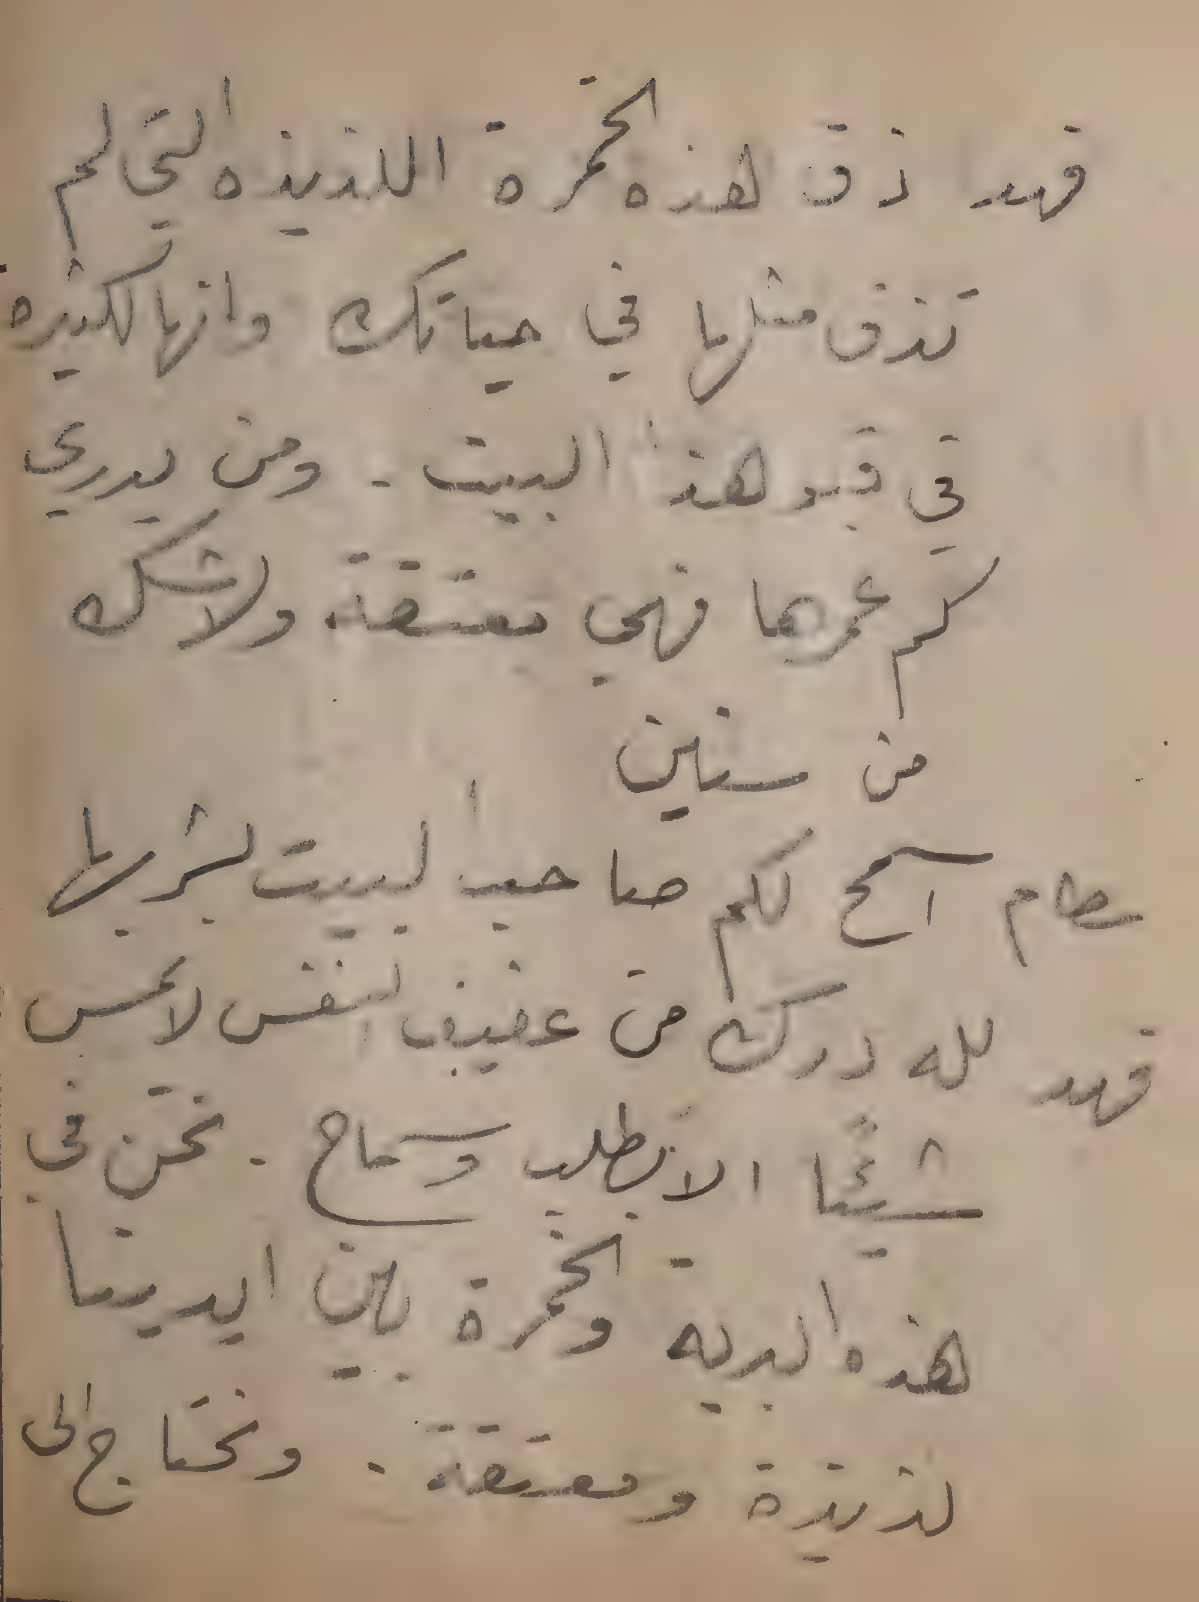 فهد ذق هذه الخمرة اللذيذه التي لم
تذق مثلها في حياتك وانها لكثيره
في قبو هذا البيت . ومن يدري
كم عمرها فهي معتقة ولا شك
من سنين
سطام آسمح لكم صاحب البيت بشربها
فهد لله درك من عفيف النفس لا تمس
شيئًا الا بطلب وسماح . نحن في
هذه البريه والخمرة بين ايدينا
لذيذة ومعتقة . ونحتاج الى